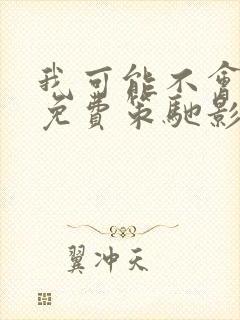 我可能不會
免費策馳影
翼冲天